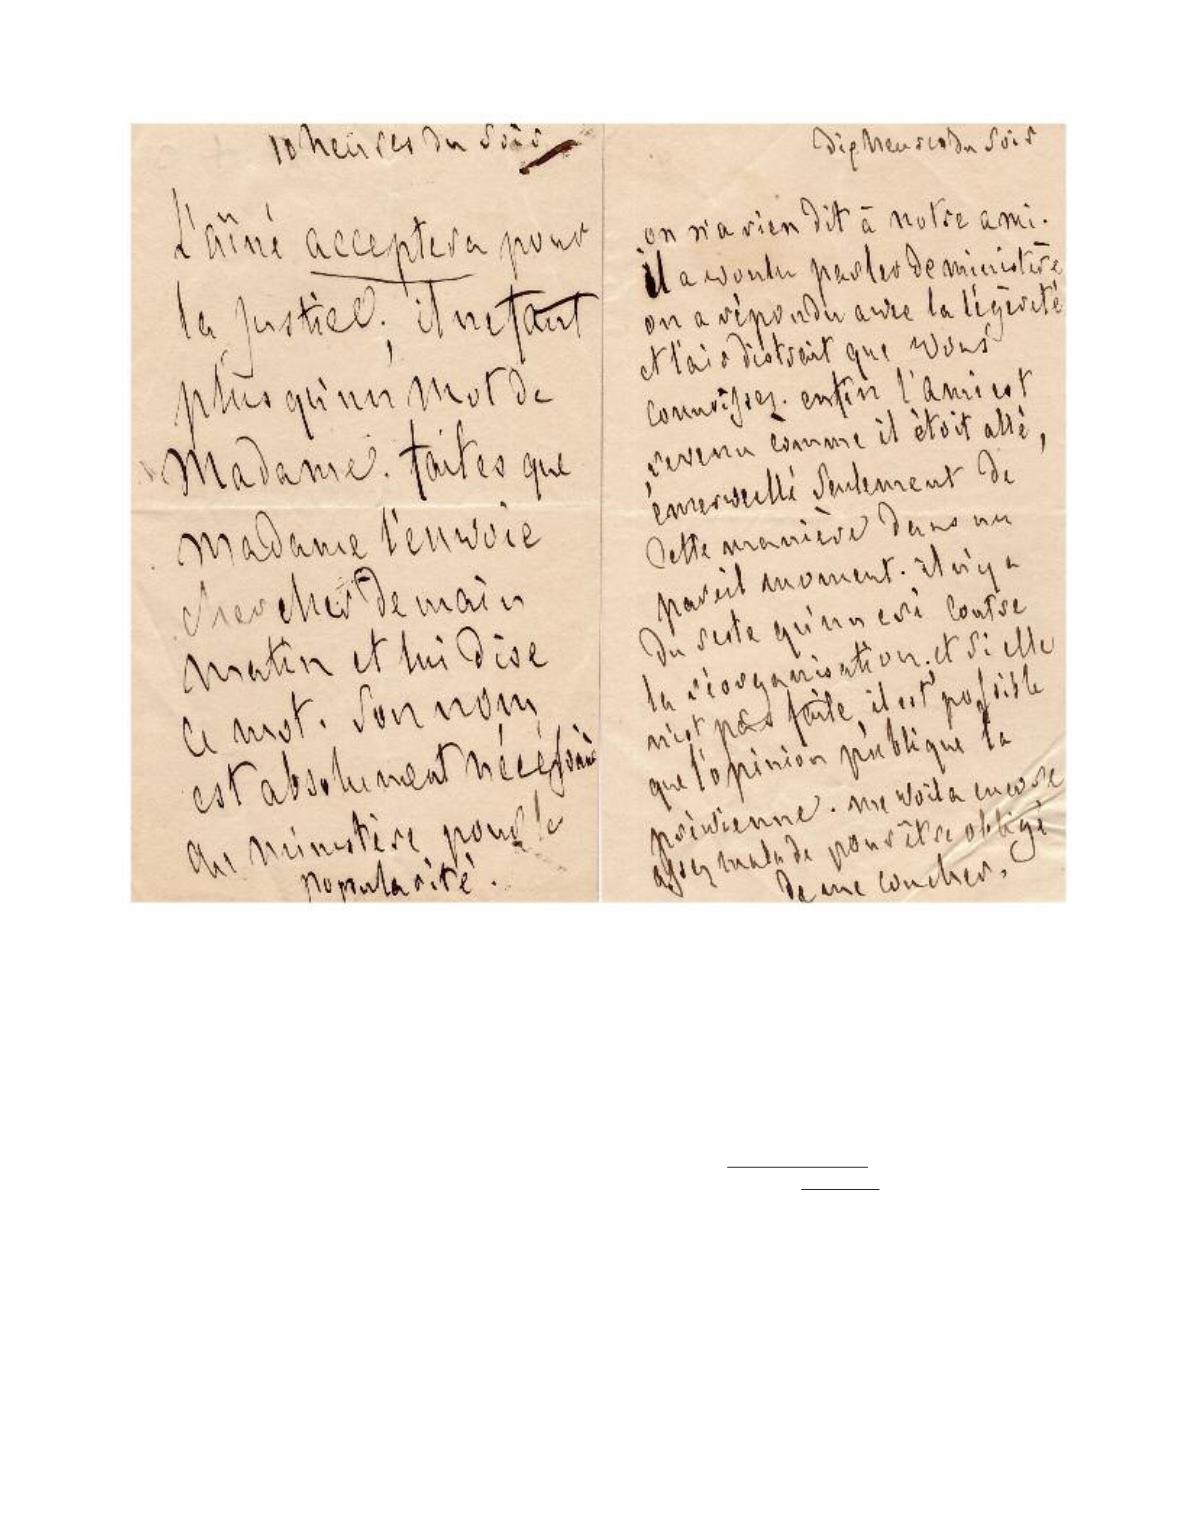 10 heures du soir
L'aîné acceptera pour
la justice; il ne faut
plus qu'un mot de
Madame. faites que
Madame l'envoie
chercher demain
matin et lui dise
ce mot. Son nom
est absolument nécessaire
au ministère pour la
popularité.
dix heures du soir
on n'a rien dit à notre ami.
il a voulu parler de ministère
on a répondu avec la légèreté
et l'air distrait que vous
connoissez. enfin l'ami est
revenu comme il étoit allé,
émerveillé seulement de
cette manière dans un
pareil moment. il n'y a
du reste qu'un cri contre
la réorganisation. et si elle
n'est pas faite, il est possible
que l'opinion publique la
prévienne. me voilà encore
assez malade pour être obligé
de me coucher.